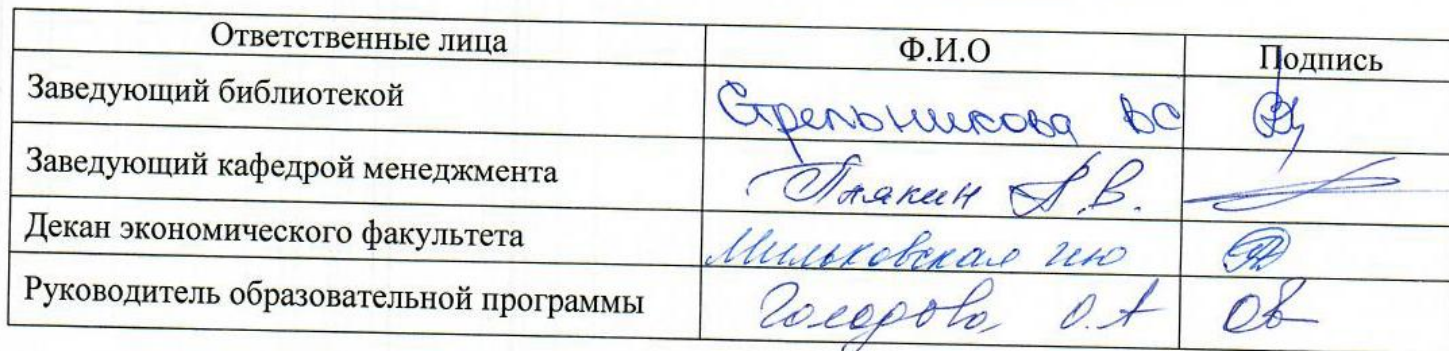 Ответственные лица Ф.И.О Подпись
Заведующий библиотекой Стрельникова ВС
Заведующий кафедрой менеджмента А.В.
Декан экономического факультета Мильковская
Руководитель образовательной программы О.А